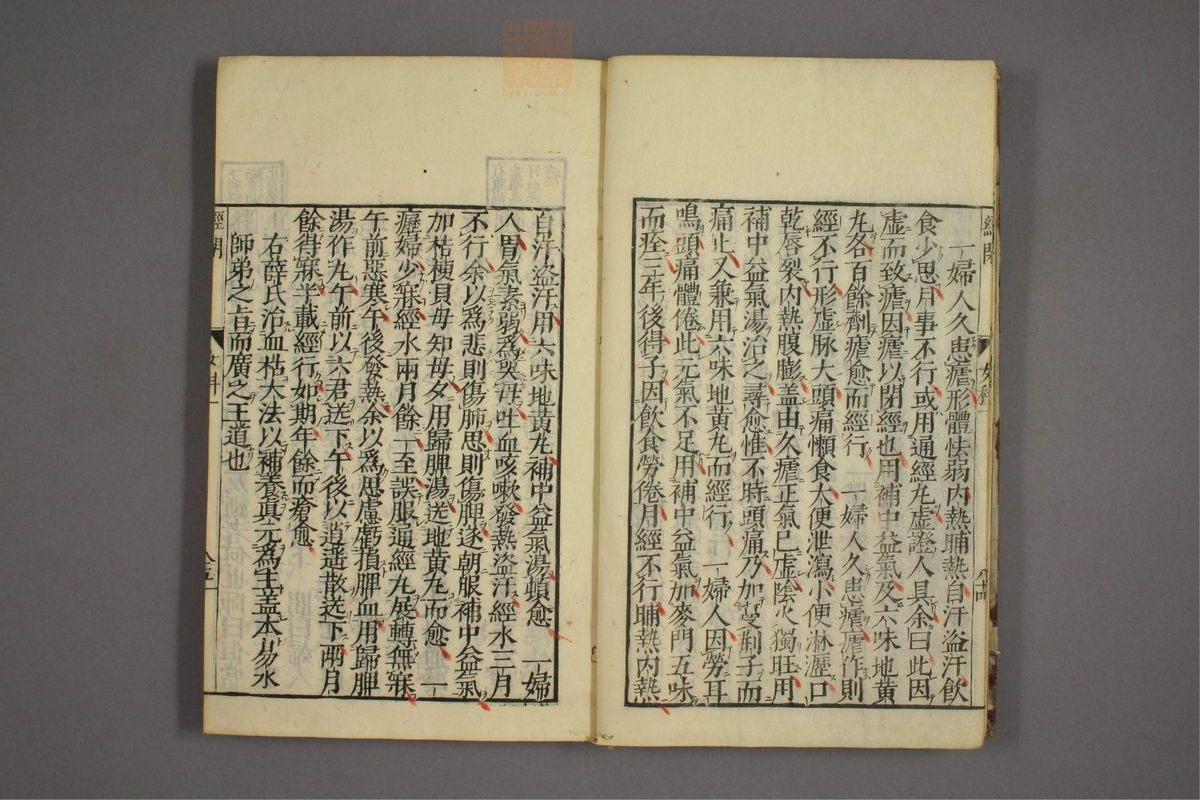 經閉
女科
一婦人久患瘧形體怯弱內熱晡熱自汗盜汗飲
食少思月事不行或用通經丸虛證人具余曰此因
虛而致瘧因瘧以閉經也用補中益氣及六味地黃
丸各百餘劑瘧愈而經行 一婦人久患瘧瘧作則
經不行形虛脉大頭痛懶食大便泄瀉小便淋瀝口
乾唇裂內熱腹膨盖由久瘧正氣已虛陰火獨旺用
補中益氣湯治之尋愈惟不時頭痛乃加蔓荆子而
痛止又兼用六味地黃丸而經行 一婦人因勞耳
鳴頭痛體倦此元氣不足用補中益氣加麥門五味
而痊三年後得子因飲食勞倦月經不行晡熱內熱
自汗盜汗用六味地黃丸補中益氣湯頓愈 一婦
人胃氣素弱爲哭母吐血咳嗽發熱盜汗經水三月
不行余以爲悲則傷肺思則傷脾遂朝服補中益氣
加桔梗貝母知母夕用歸脾湯送地黃丸而愈 一
癦婦少寐經水兩月餘一至誤服通經丸展轉無寐
午前惡寒午後發熱余以爲思慮虧損脾血用歸脾
湯作丸午前以六君送下午後以逍遥散送下兩月
餘得寐半載經行如期年餘而瘡愈
右薛氏治血枯大法以補養真元爲主盖本易水
師弟之旨而廣之王道也
經閉
女科